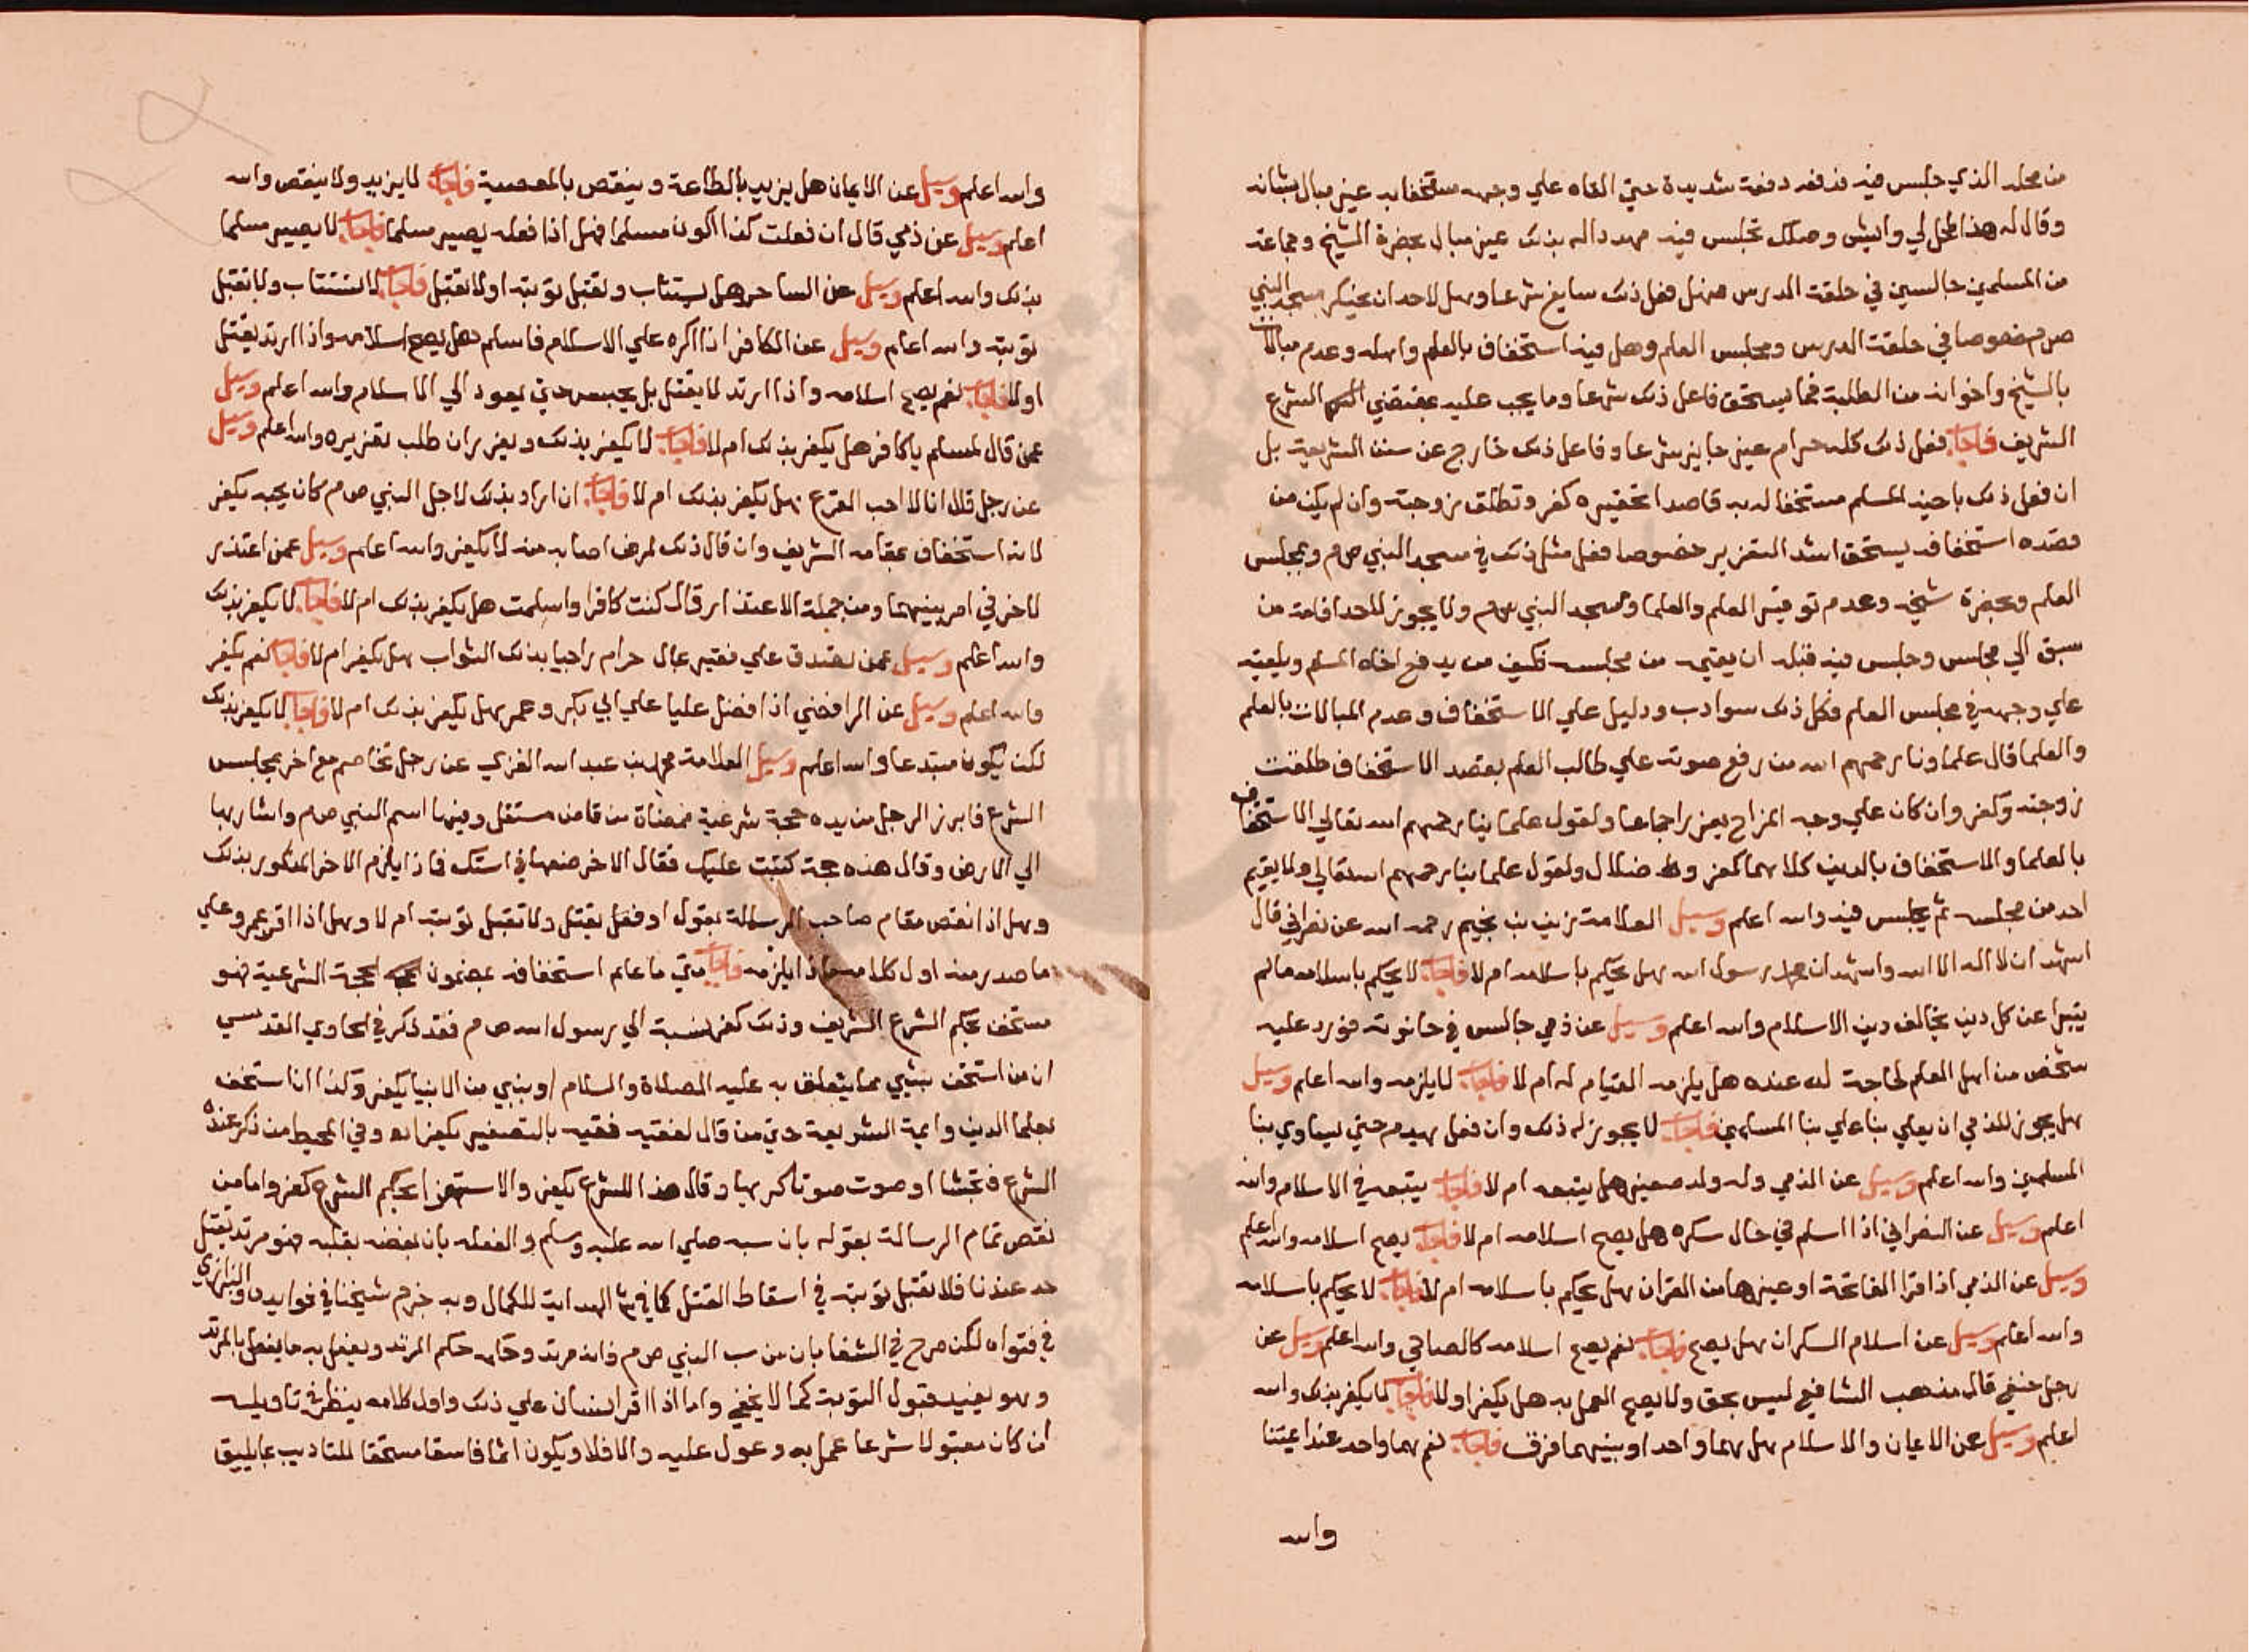 من محله الذي جلس فيه فدفعه دفعة شديدة حتي القاه علي وجهه مستخفا به غير مبال بشانه
وقال له هذا محل لي وايش وصلك تجلس فيه مهددا له بذلك غير مبال بحضرة الشيخ وجماعة
من المسلمين جالسين في حلقة الدرس فهل فعل ذلك سايغ شرعا وهل لاحد ان يحتكر مسجد النبي
ص م خصوصا في حلقة الدرس ومجلس العلم وهل فيه استخفاف بالعلم واهله وعدم مبالات
بالشيخ واخوانه من الطلبة فما يستحق فاعل ذلك شرعا وما يجب عليه بمقتضي الشرع
الشريف فاجاب فعل ذلك كله حرام غير جايز شرعا وفاعل ذلك خارج عن سنن الشريعة بل
ان فعل ذلك باخيه المسلم مستخفا له به قاصدا تحقيره كفر وتطلق زوجته وان لم يكن من
قصده استخفافه يستحق اشد التعزير خصوصا فعل مثل ذلك في مسجد النبي ص م وبمجلس
العلم وبحضرة شيخه وعدم توقير العلم والعلما ومسجد النبي ص م ولا يجوز لاحد اقامة من
سبق الي مجلس وجلس فيه قبله ان يقيمه من مجلسه فكيف من يدفع اخاه المسلم ويلقيه
علي وجهه في مجلس العلم فكل ذلك سوادب ودليل علي الاستخفاف وعدم المبالات بالعلم
والعلما قال علماونا رحمهم الله من رفع صوته علي طالب العلم بقصد الاستخفاف طلقت
زوجته وكفر وان كان علي وجه المزاح يعزر اجماعا ولقول علماينا رحمهم الله تعالي الاستخفاف
بالعلما والاستخفاف بالدين كلاهما كفر وضلال ولقول علماينا رحمهم الله تعالي ولا يقيم
احد من مجلسه ثم يجلس فيه والله اعلم وسيل العلامة زين بن نجيم رحمه الله عن نصراني قال
اشهد ان لا اله الا الله واشهد ان محمدا رسول الله هل يحكم باسلامه ام لا فاجاب لا يحكم باسلامه ما لم
يتبرا عن كل دين يخالف دين الاسلام والله اعلم وسيل عن ذمي جالس في حانوته فورد عليه
شخص من اهل العلم لحاجة له عنده هل يلزمه القيام له ام لا فاجاب لا يلزمه والله اعلم وسيل
هل يجوز للذمي ان يعلي بنا علي بنا المسلمين فاجاب لا يجوز له ذلك وان فعل يهدم حتي يساوي بنا
المسلمين والله اعلم وسيل عن الذمي وله ولد صغير هل يتبعه ام لا فاجاب يتبعه في الاسلام والله
اعلم وسيل عن النصراني اذا اسلم في حال سكره هل يصح اسلامه ام لا فاجاب يصح اسلامه والله اعلم
وسيل عن الذمي اذا قرا الفاتحة او غيرها من القران هل يحكم باسلامه ام لا فاجاب لا يحكم باسلامه
والله اعلم وسيل عن اسلام السكران هل يصح فاجاب نعم يصح اسلامه كالصاحي والله اعلم وسيل عن
رجل حنفي قال مذهب الشافعي ليس بحق ولا يصح العمل به هل يكفر او لا فاجاب لا يكفر بذلك والله
اعلم وسيل عن الايمان والاسلام هل هما واحد او بينهما فرق فاجاب نعم هما واحد عند ايمتنا
والله
والله اعلم وسيل عن الايمان هل يزيد بالطاعة وينقص بالمعصية فاجاب لا يزيد ولا ينقص والله
اعلم وسيل عن ذمي قال ان فعلت كذا اكون مسلما فهل اذا فعله يصير مسلما فاجاب لا يصير مسلما
بذلك والله اعلم وسيل عن الساحر هل يستتاب وتقبل توبته او لا تقبل فاجاب لا يستتاب ولا تقبل
توبته والله اعلم وسيل عن الكافر اذا اكره علي الاسلام فاسلم هل يصح اسلامه واذا ارتد يقتل
او لا فاجاب نعم يصح اسلامه واذا ارتد لا يقتل بل يحبس حتي يعود الي الاسلام والله اعلم وسيل
عمن قال لمسلم يا كافر هل يكفر بذلك ام لا فاجاب لا يكفر بذلك ويعزر ان طلب تعزيره والله اعلم وسيل
عن رجل قال انا لا احب القرع هل يكفر بذلك ام لا فاجاب ان اراد بذلك لاجل النبي ص م كان يحبه يكفر
لانه استخفاف بمقامه الشريف وان قال ذلك لمرض اصابه منه لا يكفر والله اعلم وسيل عمن اعتذر
لاخر في امر بينهما ومن جملة الاعتذار قال كنت كافرا واسلمت هل يكفر بذلك ام لا فاجاب لا يكفر بذلك
والله اعلم وسيل عمن تصدق علي فقير بمال حرام راجيا بذلك الثواب هل يكفر ام لا فاجاب نعم يكفر
والله اعلم وسيل عن الرافضي اذا فضل عليا علي ابي بكر وعمر هل يكفر بذلك ام لا فاجاب لا يكفر بذلك
لكن يكون مبتدعا والله اعلم وسيل العلامة محمد بن عبد الله الغزي عن رجل تخاصم مع اخر بمجلس
الشرع فابرز الرجل من يده حجة شرعية ممضاة من قاض مستقل وفيها اسم النبي ص م واشار بها
الي الارض وقال هذه حجة كتبت عليك فقال الاخر ضعها في استك فماذا يلزم الاخر المذكور بذلك
وهل اذا نقص مقام صاحب الرسالة بقول او فعل يقتل ولا تقبل توبته ام لا وهل اذا اقر عمرو علي
ما صدر منه اول كلامه ماذا يلزمه فاجاب متي ما علم استخفافه بمضمون الحجة الشرعية فهو
مستخف بحكم الشرع الشريف وذلك كفر لنسبة الي رسول الله ص م فقد ذكر في الحاوي القدسي
ان من استخف بشيي مما يتعلق به عليه الصلاة والسلام او بنبي من الانبيا يكفر وكذا اذا استخف
بعلما الدين وايمة الشريعة حتي من قال لفقيه فقيه بالتصغير يكفر اه وفي المحيط من ذكر عنده
الشرع فتجشا او صوت صوتا كريها وقال هذا للشرع يكفر والاستهزا بحكم الشرع كفر واما من
نقص مقام الرسالة بقوله بان سبه صلي الله عليه وسلم والفعله بان بغضه بقلبه فهو مرتد يقتل
حد عندنا فلا تقبل توبته في اسقاط القتل كما في ش الهداية للكمال وبه جزم شيخنا في فوايده والبزازي
في فتواه لكن صرح في الشفا بان من سب النبي ص م فانه مرتد وحكمه حكم المرتد ويفعل به ما يفعل بالمرتد
وهو يفيد قبول التوبة كما لا يخفي واما اذا اقر انسان علي ذلك واول كلامه ينظر في تاويله
ان كان مقبولا شرعا عمل به وعول عليه والا فلا ويكون اثما فاسقا مستحقا للتاديب بما يليق